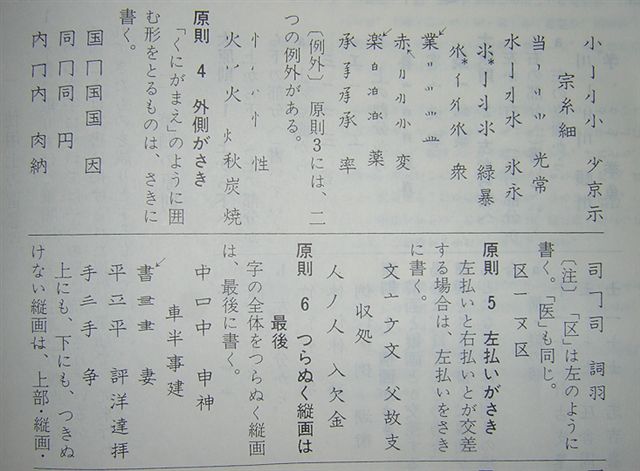 小亅小小　少京示
宗糸細
当　光常
水亅水　氷永
緑暴
衆
業
赤　変
楽白　薬
承了承　率
〔例外〕　原則3には、二
つの例外がある。
忄　性
火　火　秋炭焼
原則　4　外側がさき
「くにがまえ」のように囲
む形をとるものは、さきに
書く。
国冂国国　因
同冂同　円
内冂内　肉納
司𠃌司　詞羽
書く。「医」も同じ。
〔注〕　「区」は左のように
区一ヌ区
原則　5　左払いがさき
左払いと右払いとが交差
する場合は、左払いをさき
に書く。
文亠ナ文　父故支
収処
人ノ人　入欠金
原則　6　つらぬく縦画は
最後
字の全体をつらぬく縦画
は、最後に書く。
中口中　申神
車半事建
書　妻
平　平　評洋達拝
手　手　争
上にも、下にも、つきぬ
けない縦画は、上部・縦画・